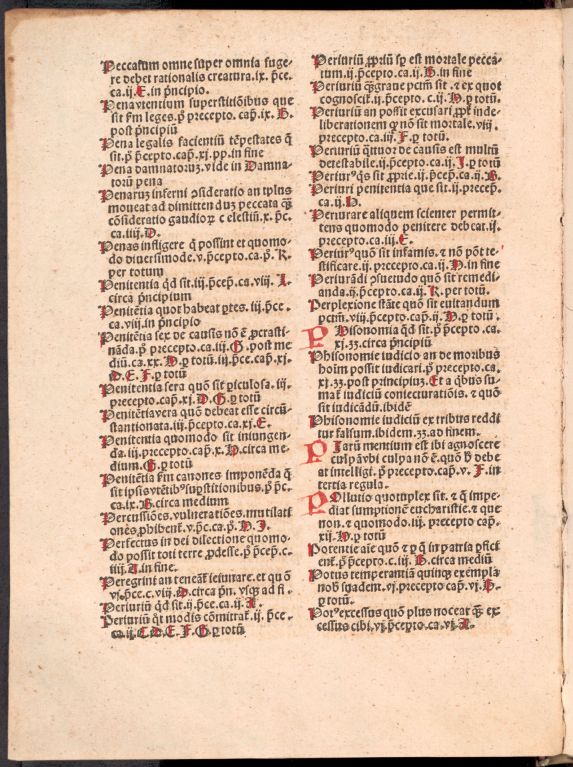 Peccatum omne super omnia fuge-
re debet rationalis creatura.ix.p̄ce.
ca.ij.E.in pñcipio.
Pena utentium superstitiōibus que
sit fm leges.p̄ precepto.cap̄.ix.H.
post pñcipiū
Pena legalis facientiū tēpestates q̄
sit.p̄ p̄cepto.cap̄.xj.pp.in fine
Pena damnatoruꝫ.vide in Damna-
torū pena
Penaruꝫ inferni ꝯsideratio an tplus
moueat ad dimittenduꝫ peccata q̄ꝫ
cōsideratio gaudioꝝ celestiū.x.p̄c.
ca.iiij.D.
Penas infligere q̄ possint et quomo-
do diuersimode.v.p̄cep.ca.p̄.K.
per totum
Penitentia qd sit.iij.p̄cep.ca.viij.I.
circa pñcipium
Penitentia quot habeat ꝑtes.iij.p̄ce.
ca.viij.in pñcipio
Penitētia sex de causis nō ē ꝓcrasti-
nāda.p̄ precepto.ca.iij.G.post me
diū.ca.xx.N.ꝑ totū.iij.p̄ce.cap̄.xj.
D.E.F.ꝑ totū
Penitentia sera quō sit ꝑiculosa.iij.
precepto.cap̄.xj.D.G.ꝑ totū
Penitētia vera quō debeat esse circū-
stantionata.iij.p̄cepto.ca.xj.E.
Penitentia quomodo sit iniungen-
da.iij.precepto.ca.x.H.circa me-
dium.G.ꝑ totū
Penitētia fm canones imponēda q̄
sit ipsis vtētibꝰ supstitionibus.p̄ p̄c.
ca.ix.H.circa medium
Percussiōes.vulneratiōes.mutilati
ones ꝓhibent̄.v.p̄c.ca.p̄.H.I.
Perfectus in dei dilectione quomo-
do possit toti terre ꝓdesse.p̄ p̄cep̄.c.
iiij.A.in fine.
Peregrini an teneāt̄ ieiunare.et quō
vj.p̄ce.c.viij.O.circa pñ.vsqꝫ ad fi.
Periuriū qd sit.ij.p̄ce.ca.ij.A.
Periuriū q̄t modis cōmitrat̄.ij.p̄ce.
ca.ij.C.D.E.F.G.ꝑ totū
Periuriū ꝓpriū sp̄ est mortale pecca-
tum.ij.p̄cepto.ca.ij.H.in fine
Periuriū q̄ꝫgraue pctm̄ sit.⁊ ex quot
cognoscit̄.ij.p̄cepto.c.ij.H.ꝑ totū.
Periuriū an possit excusari ꝓpt̄ inde-
liberationem q̄ nō sit mortale.viij.
precepto.ca.iij.F.ꝑ totū.
Periuriū q̄tuor de causis est multū
detestabile.ij.p̄cepto.ca.ij.I.ꝑ totū
Periurꝰ q̄s sit ꝓprie.ij.p̄cep.ca.ij.B.
Periuri penitentia que sit.ij.precep̄.
ca.ij.H.
Periurare aliquem scienter permit-
tens quomodo penitere debeat.ij.
precepto.ca.iij.E.
Periurꝰ quō sit infamis.⁊ nō pōt te-
stificare.ij.precepto.ca.ij.N.in fine
Periurādi ꝯsuetudo quō sit remedi-
anda.ij.p̄cepto.ca.ij.K.per totū.
Perplexione stāte quō sit euitandum
pctm̄.viij.p̄cepto.cap̄.ij.N.ꝑ totū
Phisonomia qd sit.p̄ p̄cepto.ca.
xj.33.circa pñcipiū
Phisonomie iudicio an de moribus
hoīm possit iudicari.p̄ precepto.ca.
xj.33.post principiuꝫ.Et a q̄bus su-
mat̄ iudiciū coniecturatiōis.⁊ quō
sit iudicādū.ibidē
Phisonomie iudiciū ex tribus reddi
tur falsum.ibidem.33.ad finem.
Piarū mentium est ibi agnoscere
culpā vbi culpa nō ē.quō h̄ debe
at intelligi.p̄ precepto.cap̄.v.F.in
tertia regula.
Pollutio quotuplex sit.⁊ q̄ impe
diat sumptionē eucharistie.⁊ que
non.⁊ quomodo.iij.precepto cap̄.
xij.N.ꝑ totū
Potentie aīe quō ⁊ ꝑ q̄ in patria ꝑfici
ent̄.p̄ p̄cepto.c.iij.H.circa mediū
Potus temperantiā quinqꝫ exempla
nob̄ suadent.vj.precepto cap̄.vj.H.
ꝑ totū.
Potꝰ excessus quō plus noceat q̄ꝫ ex
cessus cibi.vj.p̄cepto.ca.vj.A.